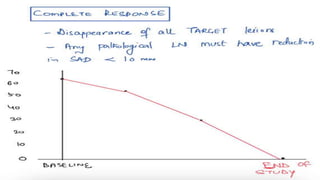 COMPLETE RESPONSE
- Disappearance of all TARGET lesions
- Any pathological LN must have reduction
in SAD < 10 mm
70
60
50
40
30
20
10
0
BASELINE
END OF
STUDY